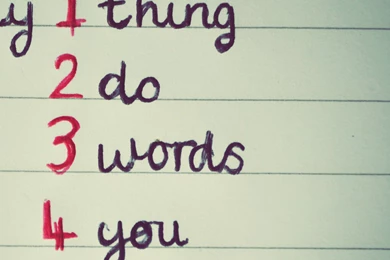 y 1 thing
2 do
3 words
4 you